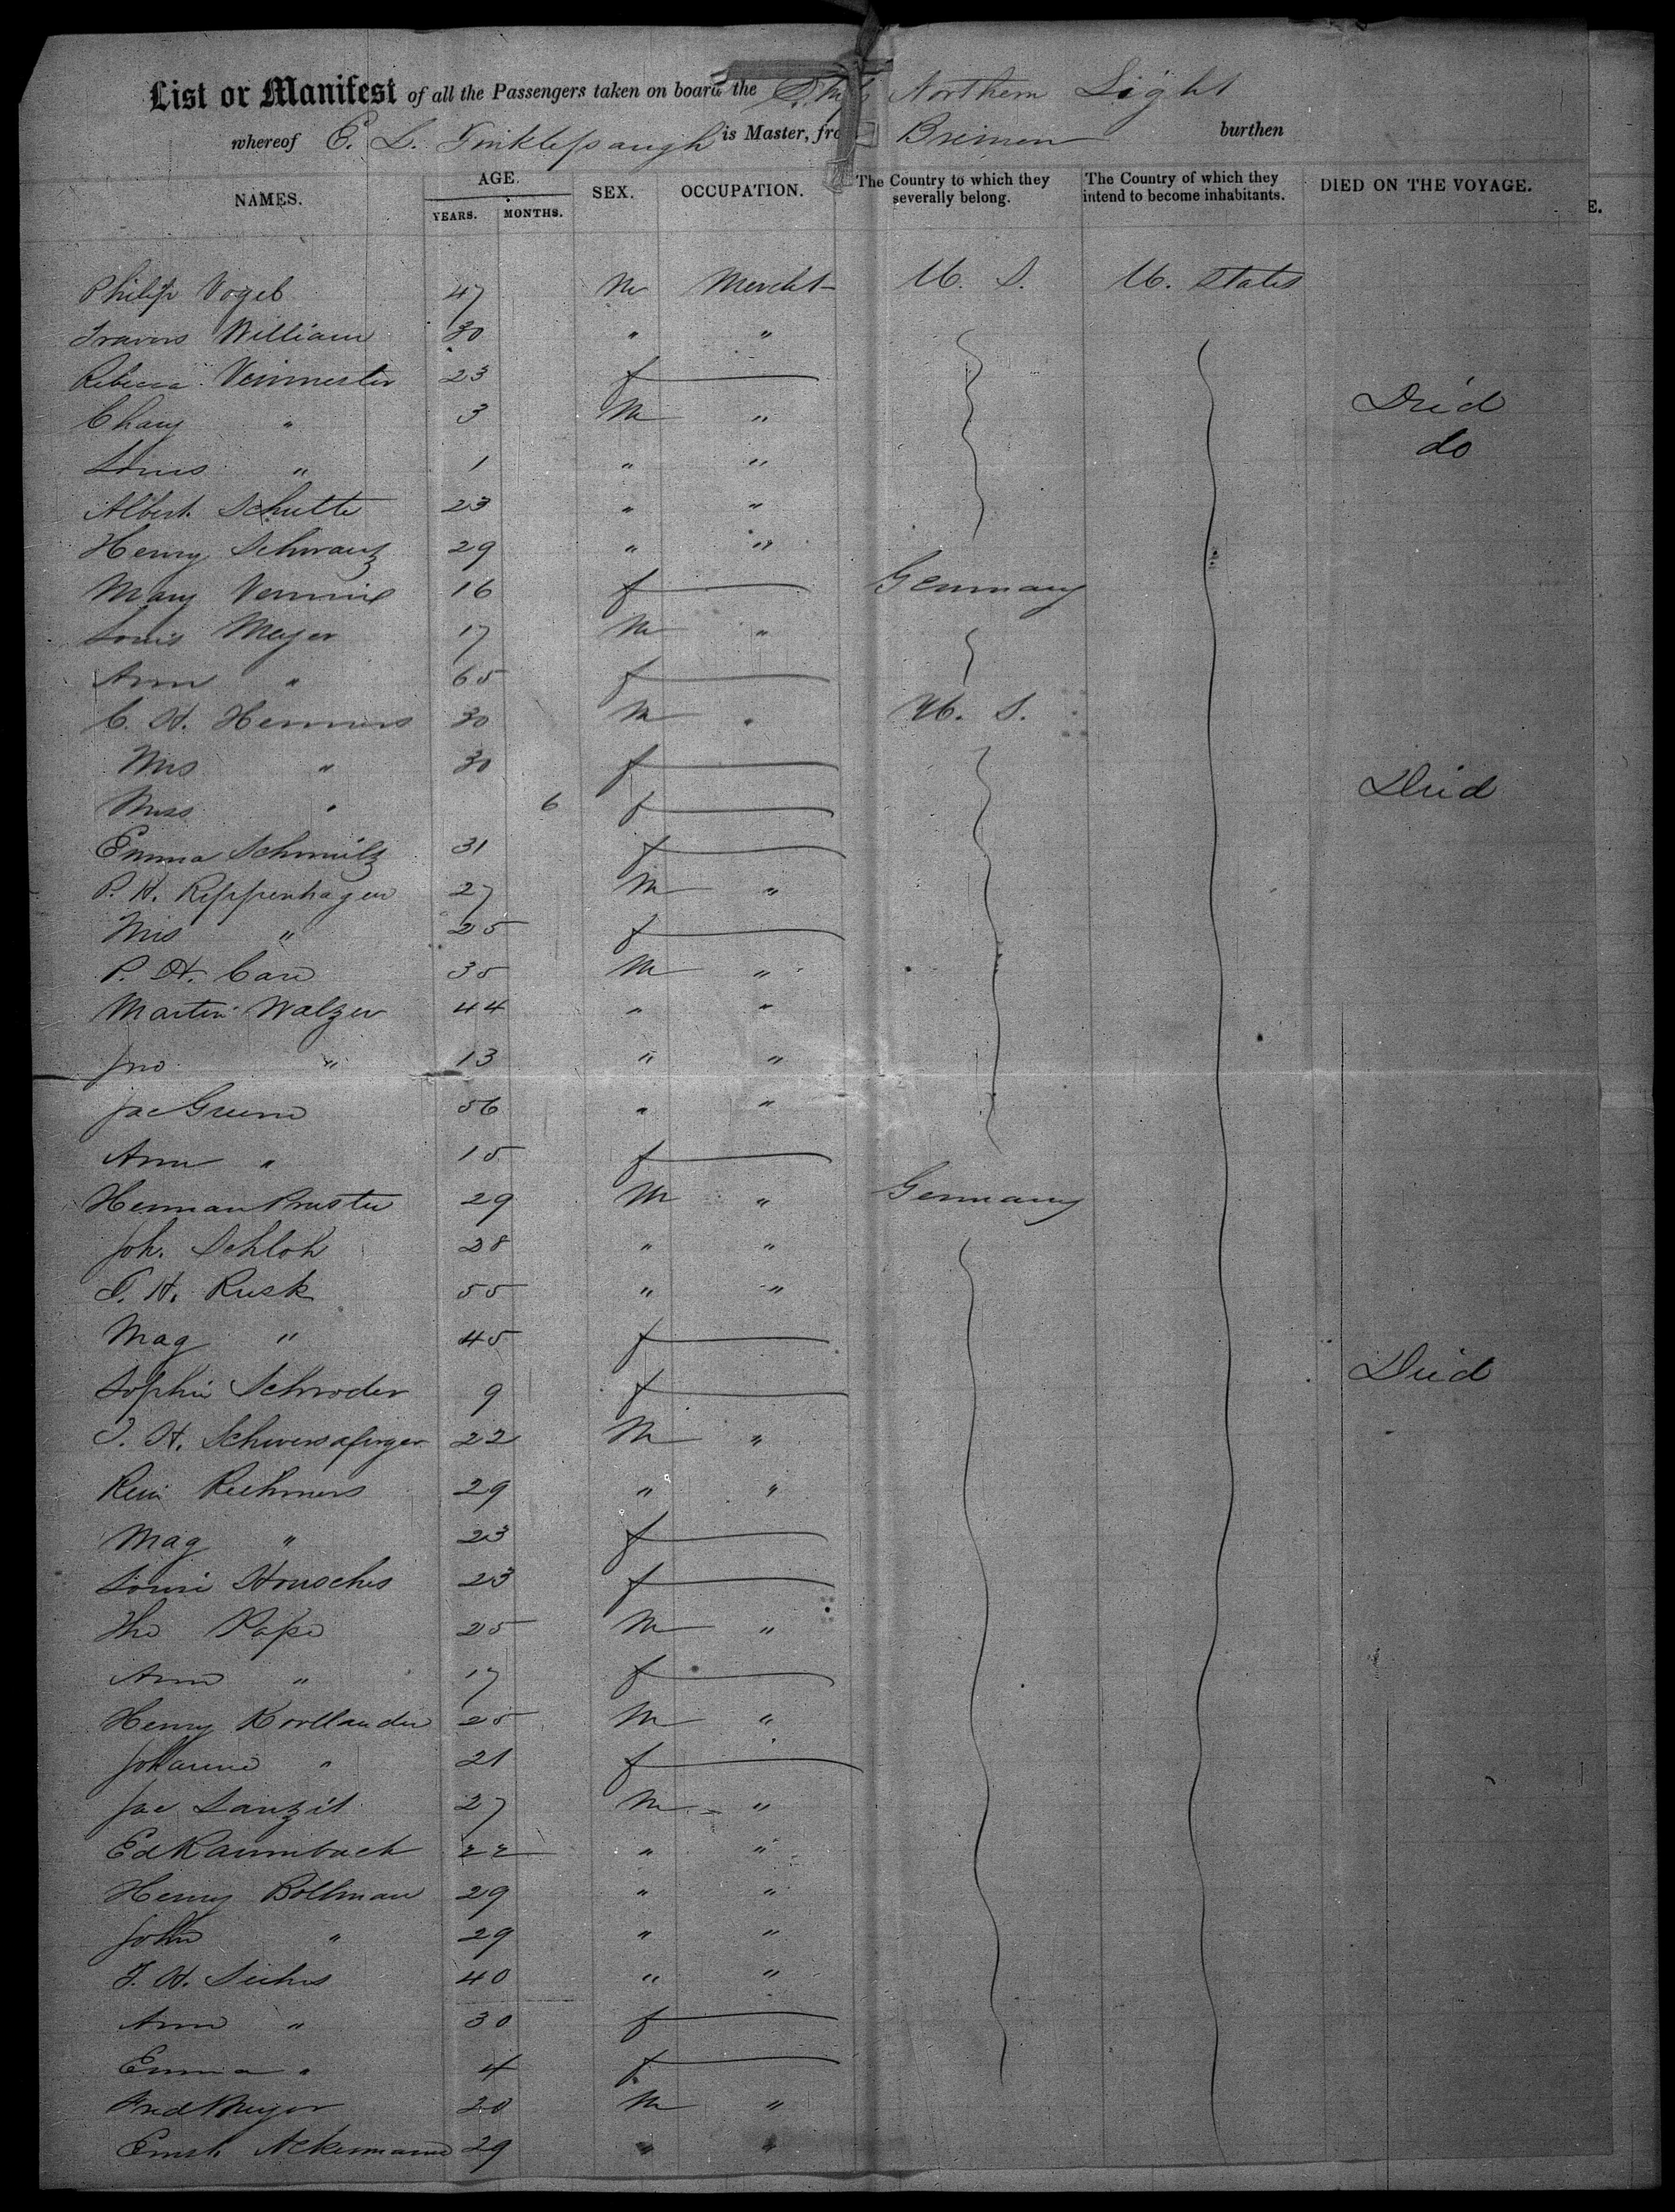 List or Manifest of all the Passengers taken on board the Ship Northern Light
whereof E. L. Tinklepaugh is Master, from Bremen burthen
NAMES. AGE. SEX. OCCUPATION. The Country to which they severally belong. The Country of which they intend to become inhabitants. DIED ON THE VOYAGE.
YEARS. MONTHS.
E.
Philip Vogel 47 M Mercht U. S. U. States
Travers William 30 " "
Rebecca 23 f
Chany " 3 M " Died
Louis " 1 " " do
Albert Schutte 23 " "
Henry Schwartz 29 " "
Mary 16 f Germany
Louis Meyer 17 M "
Ann " 65 f
C. H. Hermers 30 M " U. S.
Mrs " 30 f
Miss " 6 f Died
Emma Schmultz 31 f
P. H. Reppenhagen 27 M "
Mrs " 25 f
P. H. Carr 35 M "
Martin Walzer 44 " "
Jno " 13 " "
Jac Green 56 " "
Ann " 15 f
Herman Pruster 29 M " Germany
Joh. Schloh 28 " "
T. H. Rusk 55 " "
Mag " 45 f
Sophie Schroder 9 f Died
J. H. 22 M "
29 " "
Mag " 23 f
Louise 23 f
Pape 25 M "
Ann " 17 f
Henry Korllander 25 M "
Johanne " 21 f
Jac Lanzit 27 M "
Ed Raumbach 22 " "
Henry Bollman 29 " "
John " 29 " "
J. H. 40 " "
Ann " 30 f
Emma " 4 f
Fred Meyer 20 M "
Ernst Ackermann 29 " "